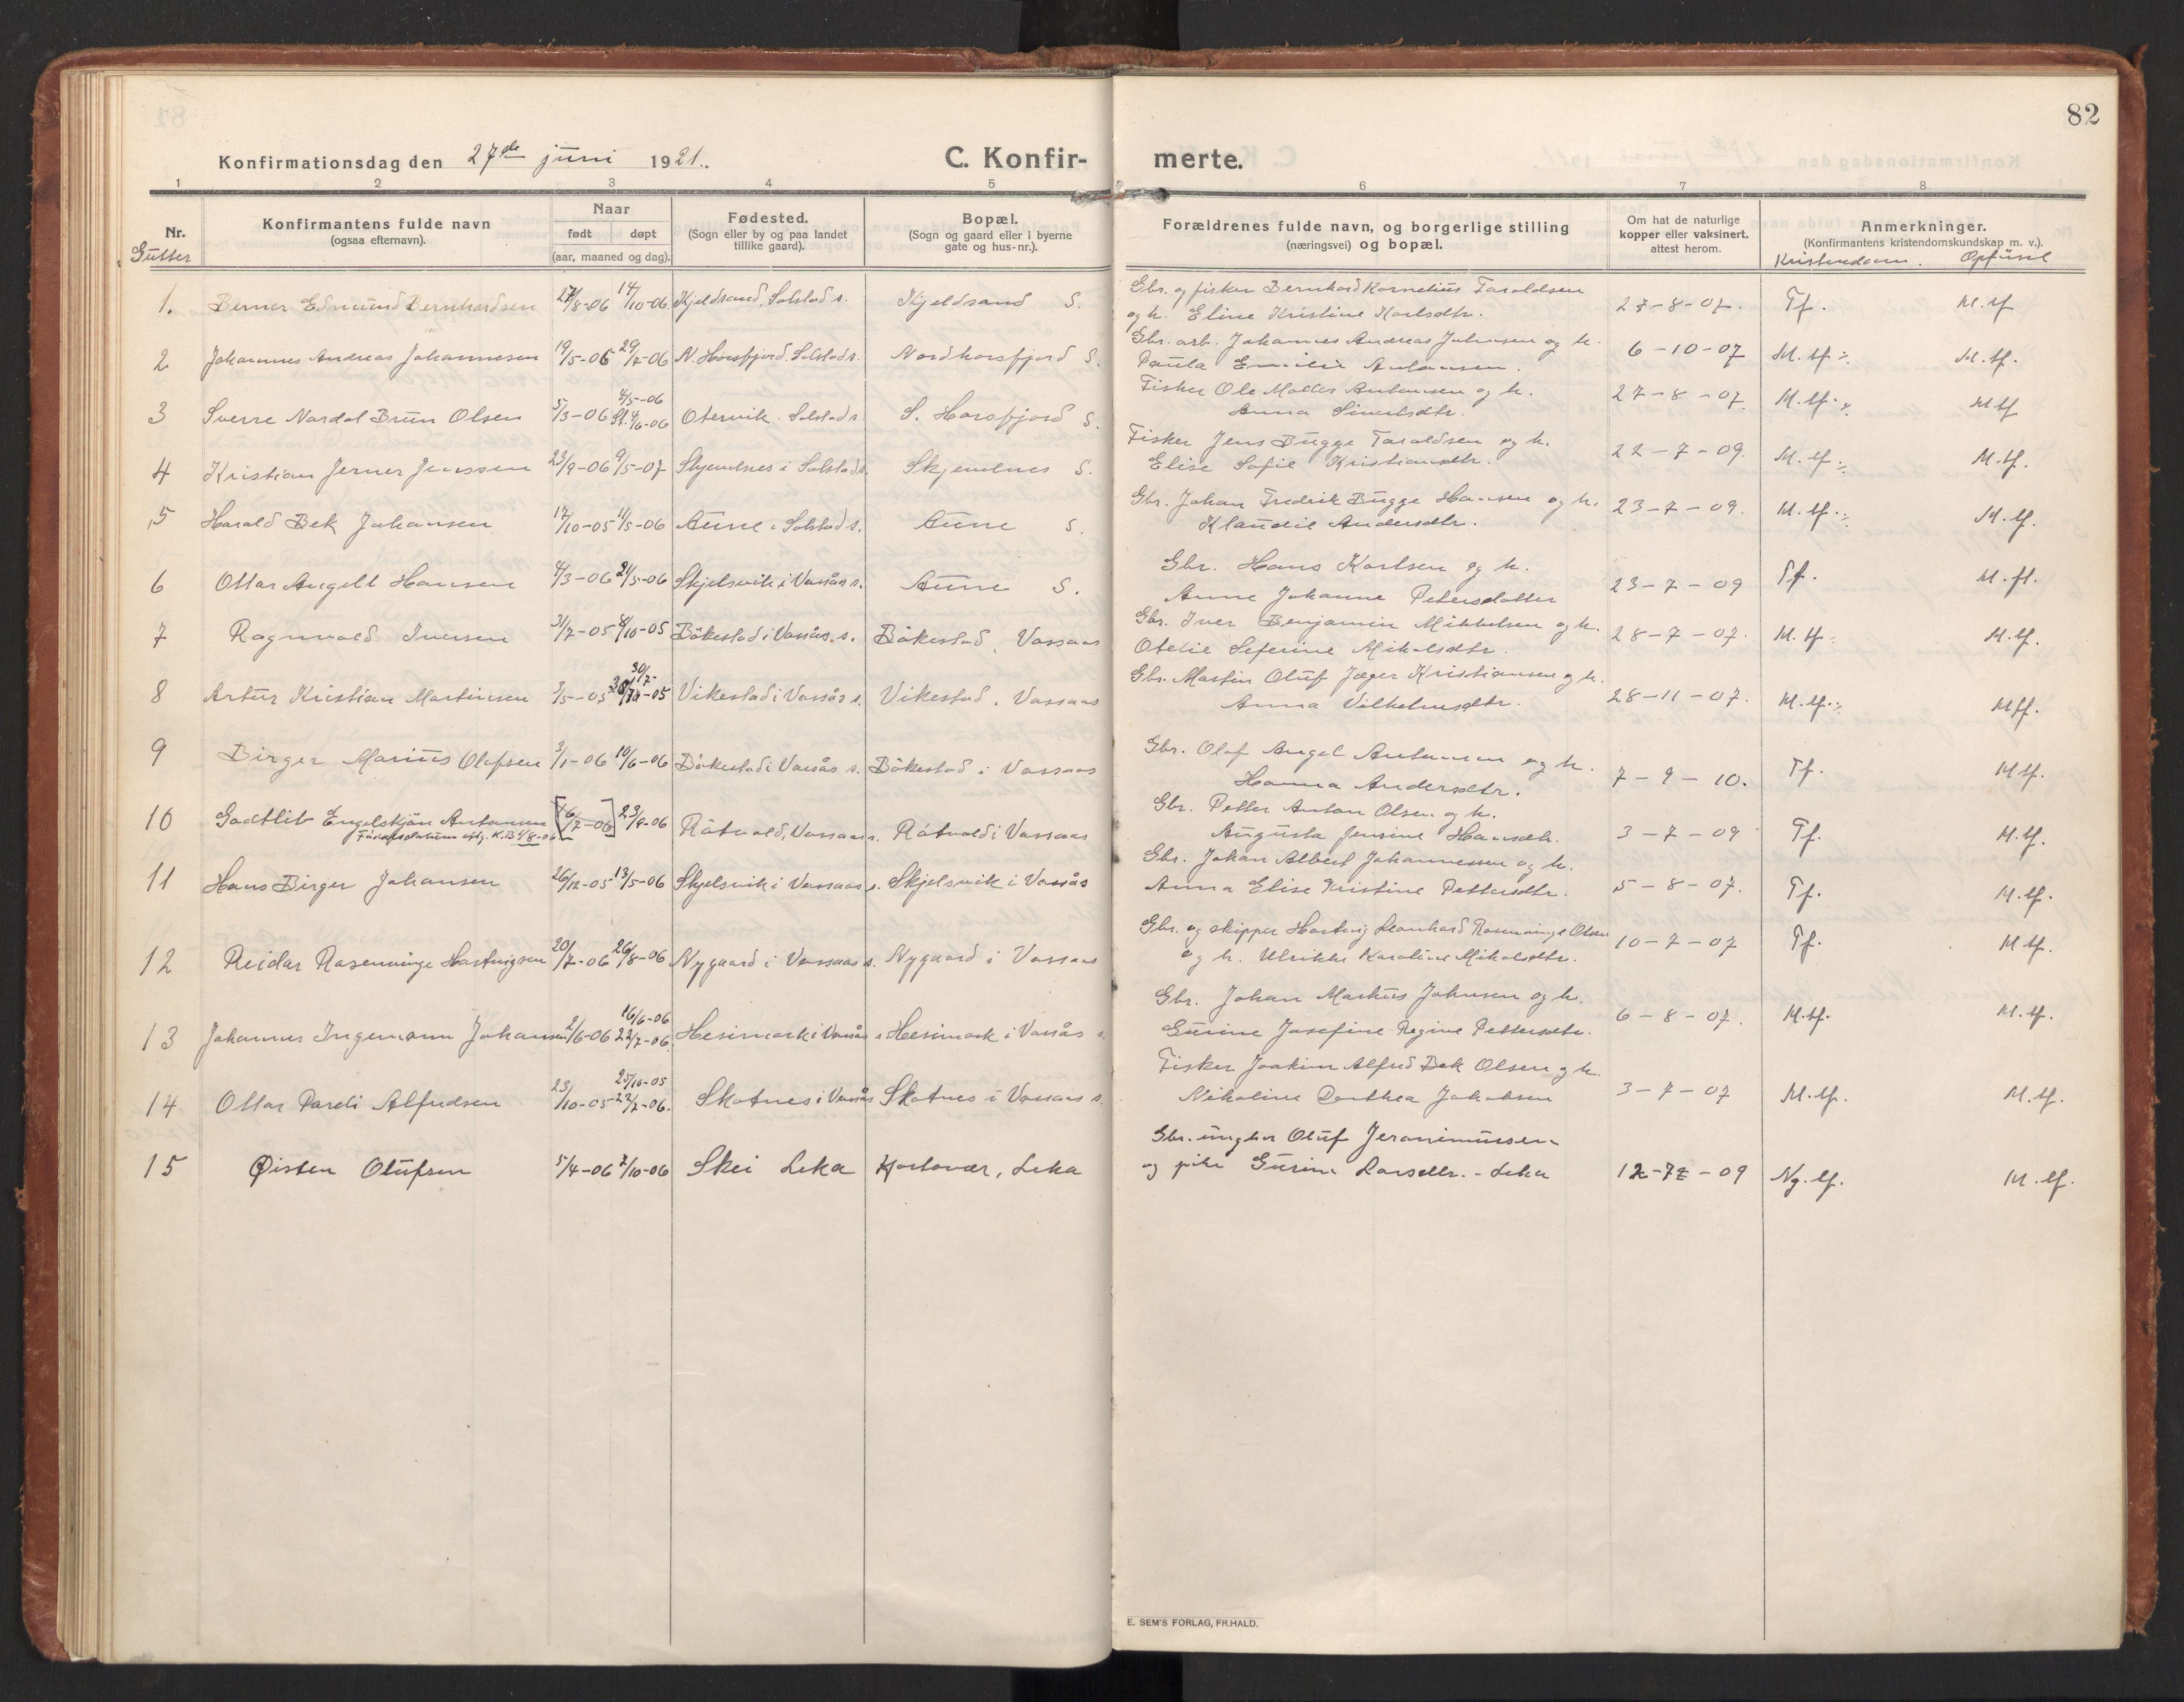 82
Konfirmationsdag den 27de juni 1921.
C. Konfirmerte.
1 2 3 4 5 6 7 8
Nr.
Gutter
Konfirmantens fulde navn
(ogsaa efternavn).
Naar
født døpt
(aar, maaned og dag).
Fødested.
(Sogn eller by og paa landet
tillike gaard).
Bopæl.
(Sogn og gaard eller i byerne
gate og hus-nr.).
Forældrenes fulde navn, og borgerlige stilling
(næringsvei) og bopæl.
Om hat de naturlige
kopper eller vaksinert,
attest herom.
Anmerkninger.
(Konfirmantens kristendomskundskap m. v.).
Kristendom. Opførsel
1. Berner Edmund Bernhardsen 27/8-06 14/10-06 Kjeldsand, Solstad s. Kjeldsand S. Gbr. og fisker Bernhard Kornelius Taraldsen
og h. Eline Kristine Karlsdtr. 27-8-07. Tf. M.tf
2 Johannes Andreas Johannesen 19/5-06 29/7-06 N. Horsfjord. Solstad s. Nordhorsfjord S. Gbr. arb. Johannes Andreas Johnsen og h.
Paula Emilie Antonsen. 6-10-07 M.tf. M.tf.
3 Sverre Nordal Brun Olsen 5/3-06 4/5-06
St. 4/6-06 Otervik. Solstad s. S. Horsfjord S. Fisker Ole Møller Antonsen og h.
Anna Sivertsdtr. 27-8-07. M.tf. M.tf
4 Kristian Jerner Jenssen 23/9-06 9/5-07 Skjevelnes i Solstad s. Skjevelnes S. Fisker Jens Bugge Taraldsen og h.
Elise Sofie Kristiansdtr. 22-7-09. M.tf. M.tf.
5 Harald Bek Johansen 17/10-05 11/5-06 Aune i Solstad s. Aune S. Gbr. Johan Fredrik Bugge Hansen og h.
Klaudie Andersdtr. 23-7-09. M.tf. M.tf.
6 Ottar Angelt Hansen 4/3-06 21/5-06 Skjelsvik i Vassås s. Aune S. Gbr. Hans Karlsen og h.
Anne Johanne Petersdatter 23-7-09 Tf. M.ft.
7 Ragnvald Iversen 31/7-05 8/10-05 Bökestad i Vassås s. Bökestad, Vassaas Gbr. Iver Benjamin Mikkelsen og h.
Otelie Seferine Mikalsdtr. 28-7-07. M.tf. M.tf.
8 Artur Kristian Martinsen 3/5-05 30/7-05 Vikestad i Vassås s. Vikestad, Vassaas Gbr. Martin Oluf Jæger Kristiansen og h.
Anna Vilhelmsdtr. 28-11-07. M.tf. Mtf.
9 Birger Marius Olafsen 3/1-06 10/6-06 Bökestad i Vassås s. Bökestad i Vassaas Gbr. Olaf Angel Antonsen og h.
Hanna Andersdtr. 7-9-10. Tf. M.tf.
10 Godtlib Engelskjön Antonsen [16/7-06] 23/9-06 Råtvold, Vassaas s. Råtvold i Vassaas Gbr. Petter Anton Olsen og h.
Fødselsdatum eftg. K.B 4/8-06
Augusta Jensine Hansdtr. 3-7-09 Tf. M.tf.
11 Hans Birger Johansen 26/12-05 13/5-06 Skjelsvik i Vassaas s. Skjelsvik i Vassås Gbr. Johan Albert Johannessen og h.
Anna Elise Kristine Pettersdtr. 5-8-07. Tf. M.tf.
12 Reidar Rosenvinge Hartvigsen 20/7-06 26/8-06 Nygaard i Vassaas s. Nygaard i Vassaas Gbr. og skipper Hartvig Leonhard Rosenvinge Olsen
og h. Ulrikke Karoline Mikalsdtr. 10-7-07 Tf. M.tf.
13 Johannes Ingemann Johansen 2/6-06 16/6-06
22/7-06. Hesimark i Vassås s Heimark i Vassås s. Gbr. Johan Markus Johnsen og h.
Gurine Josefine Regine Pettersdtr. 6-8-07. M.tf. M.tf.
14 Ottar Pareli Alfredsen 23/10-05 25/10-05
22/7-06. Skotnes i Vassås Skotnes i Vassaas s. Fisker Joakim Alfred Bek Olsen og h.
Nikoline Dorthea Jakobsen 3-7-07 M.tf. M.tf.
15 Øisten Olufsen 5/4-06 7/10-06 Skei Leka Hortavær, Leka Gbr. ungkar Oluf Jeronimussen
og pike Gurine Larsdtr. - Leka 12-7-09 Ng.tf. M.tf.
E. SEM'S FORLAG, FR.HALD.